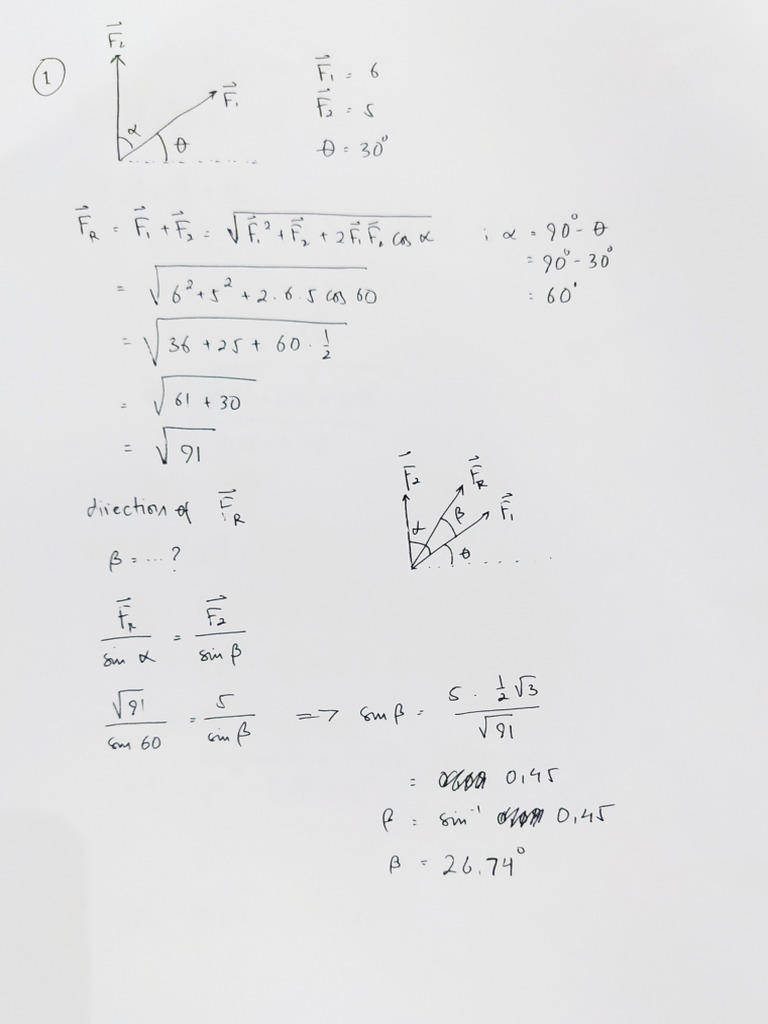 ①
F⃗₂
F⃗₁
α
θ
F⃗₁ = 6
F⃗₂ = 5
θ = 30°
F⃗_R = F⃗₁ + F⃗₂ = √(F⃗₁² + F⃗₂ + 2F⃗₁F⃗₂ cos α ; α = 90° - θ
= √(6² + 5² + 2 . 6 . 5 cos 60 = 90° - 30°
= √(36 + 25 + 60 . 1/2) = 60°
= √(61 + 30)
= √91
direction of F⃗_R
β = ... ?
F⃗₂
F⃗_R
F⃗₁
α
β
θ
F⃗_R / sin α = F⃗₂ / sin β
√91 / sin 60 = 5 / sin β => sin β = 5 . 1/2 √3 / √91
= 0,45
β = sin⁻¹ 0,45
β = 26.74°